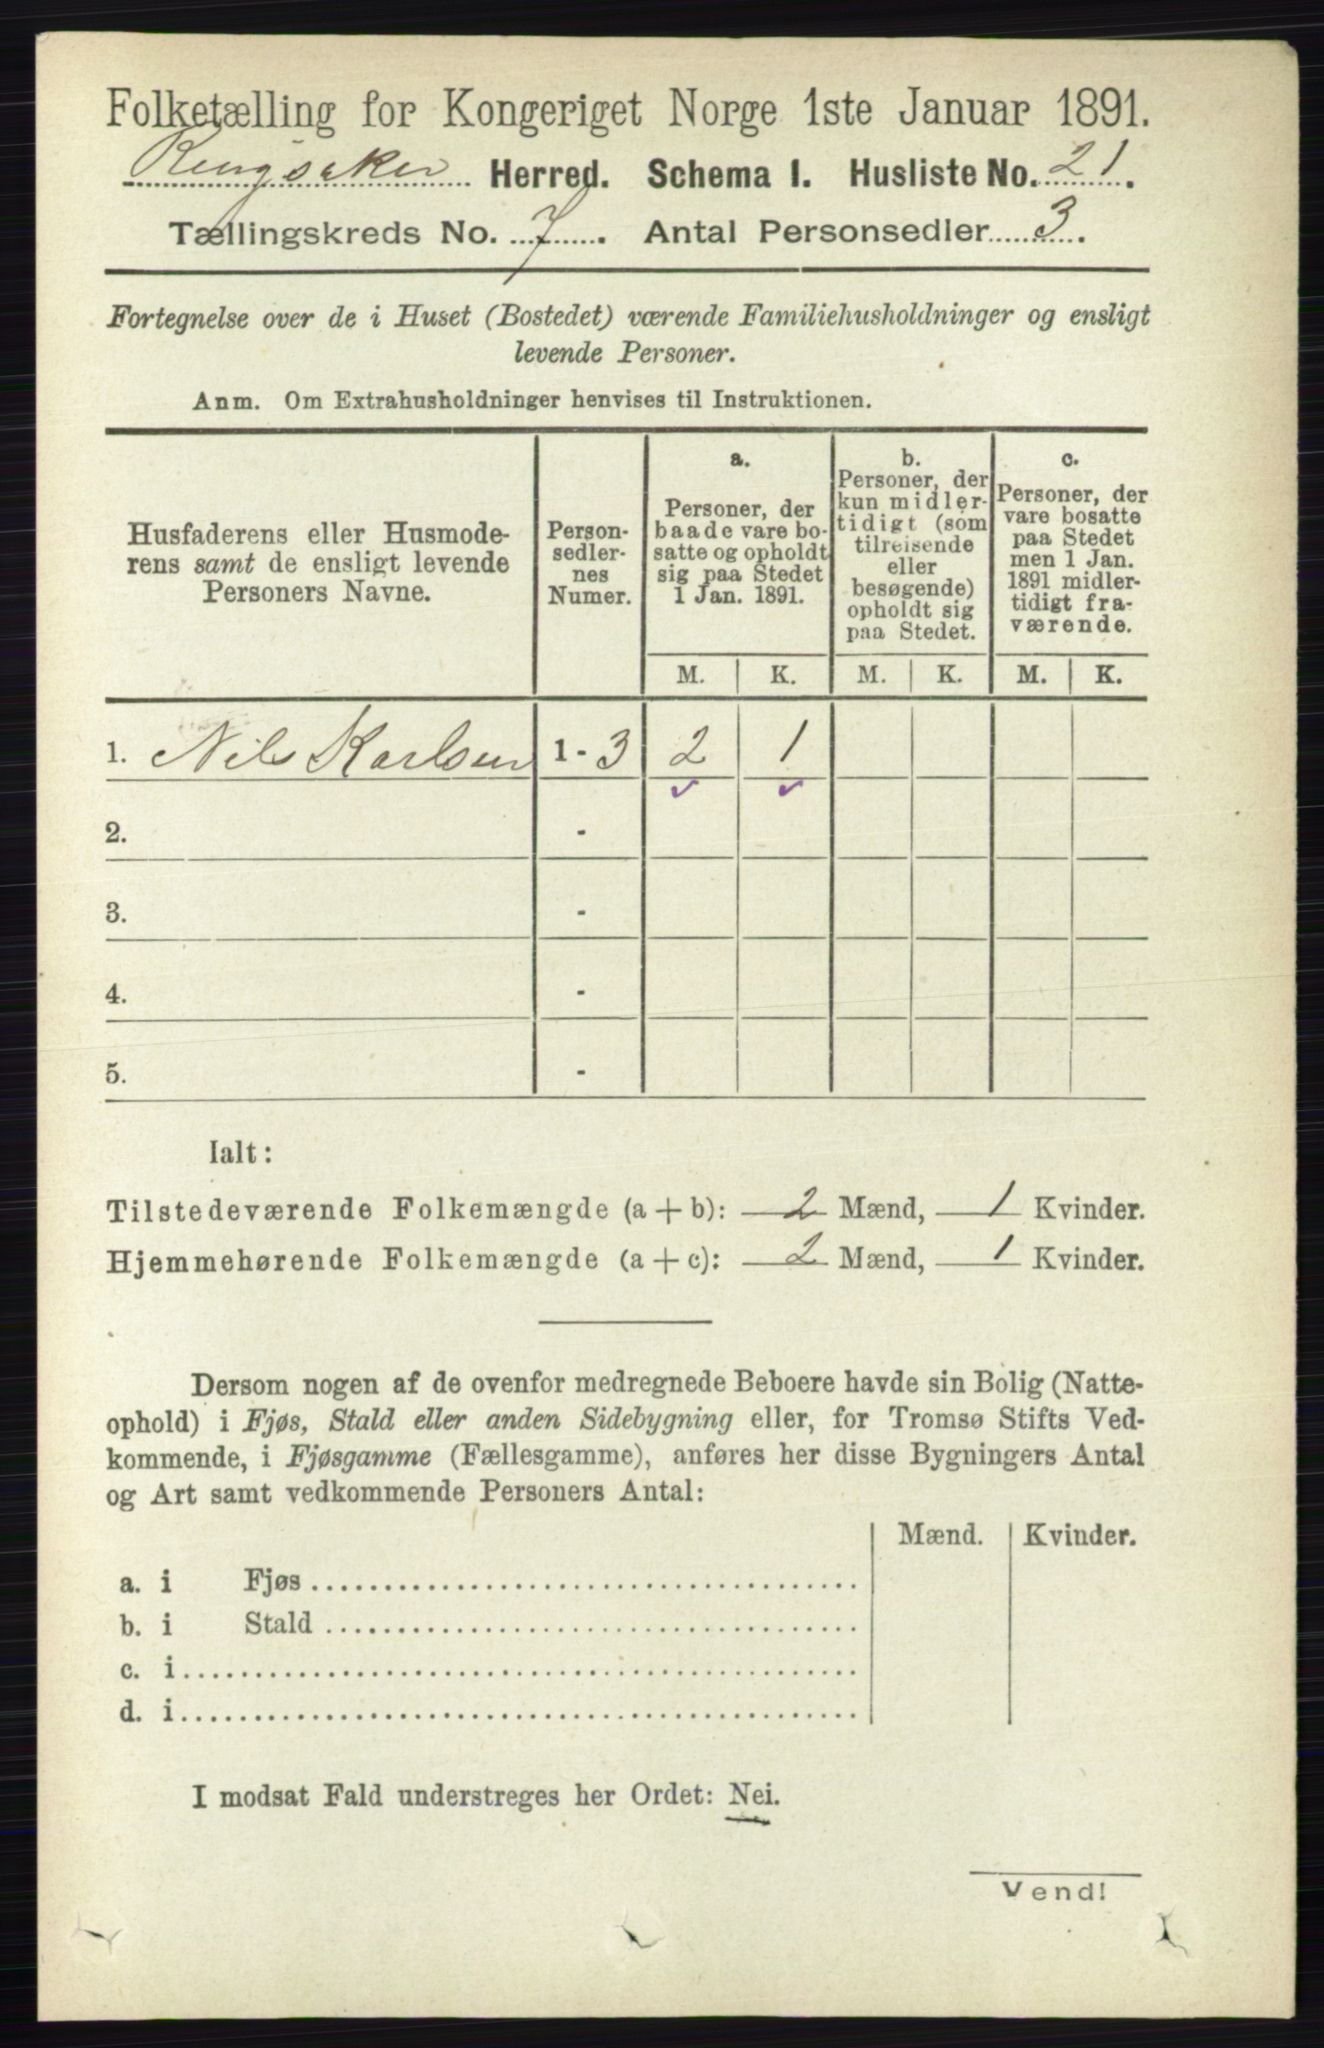 Folketælling for Kongeriget Norge 1ste Januar 1891.
Ringsaker Herred. Schema I. Husliste No. 21.
Tællingskreds No. 7. Antal Personsedler 3.
Fortegnelse over de i Huset (Bostedet) værende Familiehusholdninger og ensligt
levende Personer.
Anm. Om Extrahusholdninger henvises til Instruktionen.
Husfaderens eller Husmode-
rens samt de ensligt levende
Personers Navne.
Person-
sedler-
nes
Numer.
a.
Personer, der
baade vare bo-
satte og opholdt
sig paa Stedet
1 Jan. 1891.
b.
Personer, der
kun midler-
tidigt (som
tilreisende
eller
besøgende)
opholdt sig
paa Stedet.
c.
Personer, der
vare bosatte
paa Stedet
men 1 Jan.
1891 midler-
tidigt fra-
værende.
M. K. M. K. M. K.
1. Nils Karlsen 1 - 3 2 1
2. -
3. -
4. -
5. -
Ialt:
Tilstedeværende Folkemængde (a + b): 2 Mænd, 1 Kvinder.
Hjemmehørende Folkemængde (a + c): 2 Mænd, 1 Kvinder.
Dersom nogen af de ovenfor medregnede Beboere havde sin Bolig (Natte-
ophold) i Fjøs, Stald eller anden Sidebygning eller, for Tromsø Stifts Ved-
kommende, i Fjøsgamme (Fællesgamme), anføres her disse Bygningers Antal
og Art samt vedkommende Personers Antal:
Mænd. Kvinder.
a. i Fjøs
b. i Stald
c. i
d. i
I modsat Fald understreges her Ordet: Nei.
Vend!